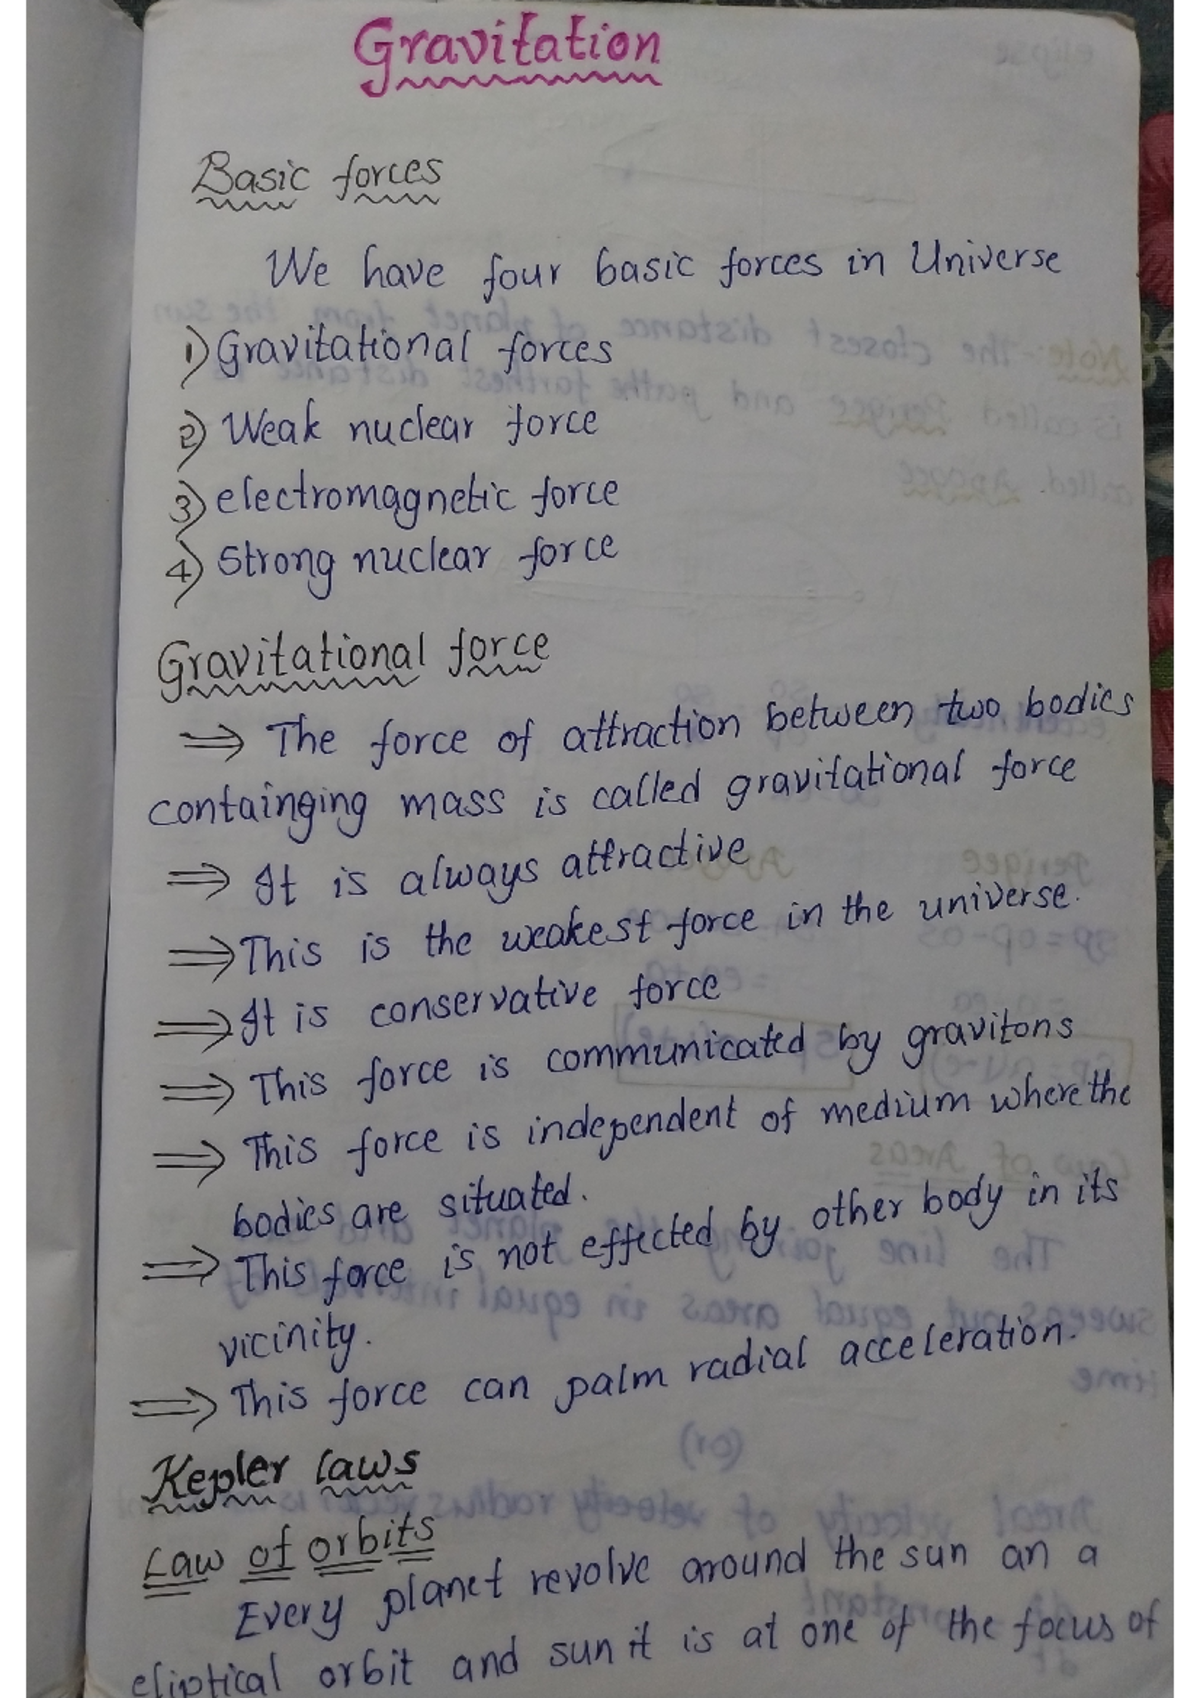 Gravitation
Basic forces
We have four basic forces in Universe
1) Gravitational forces
2) Weak nuclear force
3) electromagnetic force
4) Strong nuclear force
Gravitational force
⇒ The force of attraction between two bodies
containging mass is called gravitational force
⇒ It is always attractive
⇒ This is the weakest force in the universe.
⇒ It is conservative force
⇒ This force is communicated by gravitons
⇒ This force is independent of medium where the
bodies are situated.
⇒ This force is not effected by other body in its
vicinity.
⇒ This force can palm radial acceleration.
Kepler laws
Law of orbits
Every planet revolve around the sun an a
eliptical orbit and sun it is at one of the focus of